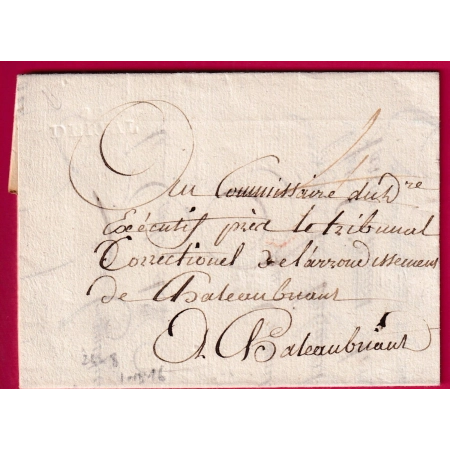 Au Commissaire du D.re
Exécutif près le tribunal
Correctionel de l'arrondissement
de Chateaubriant
A Chateaubriant